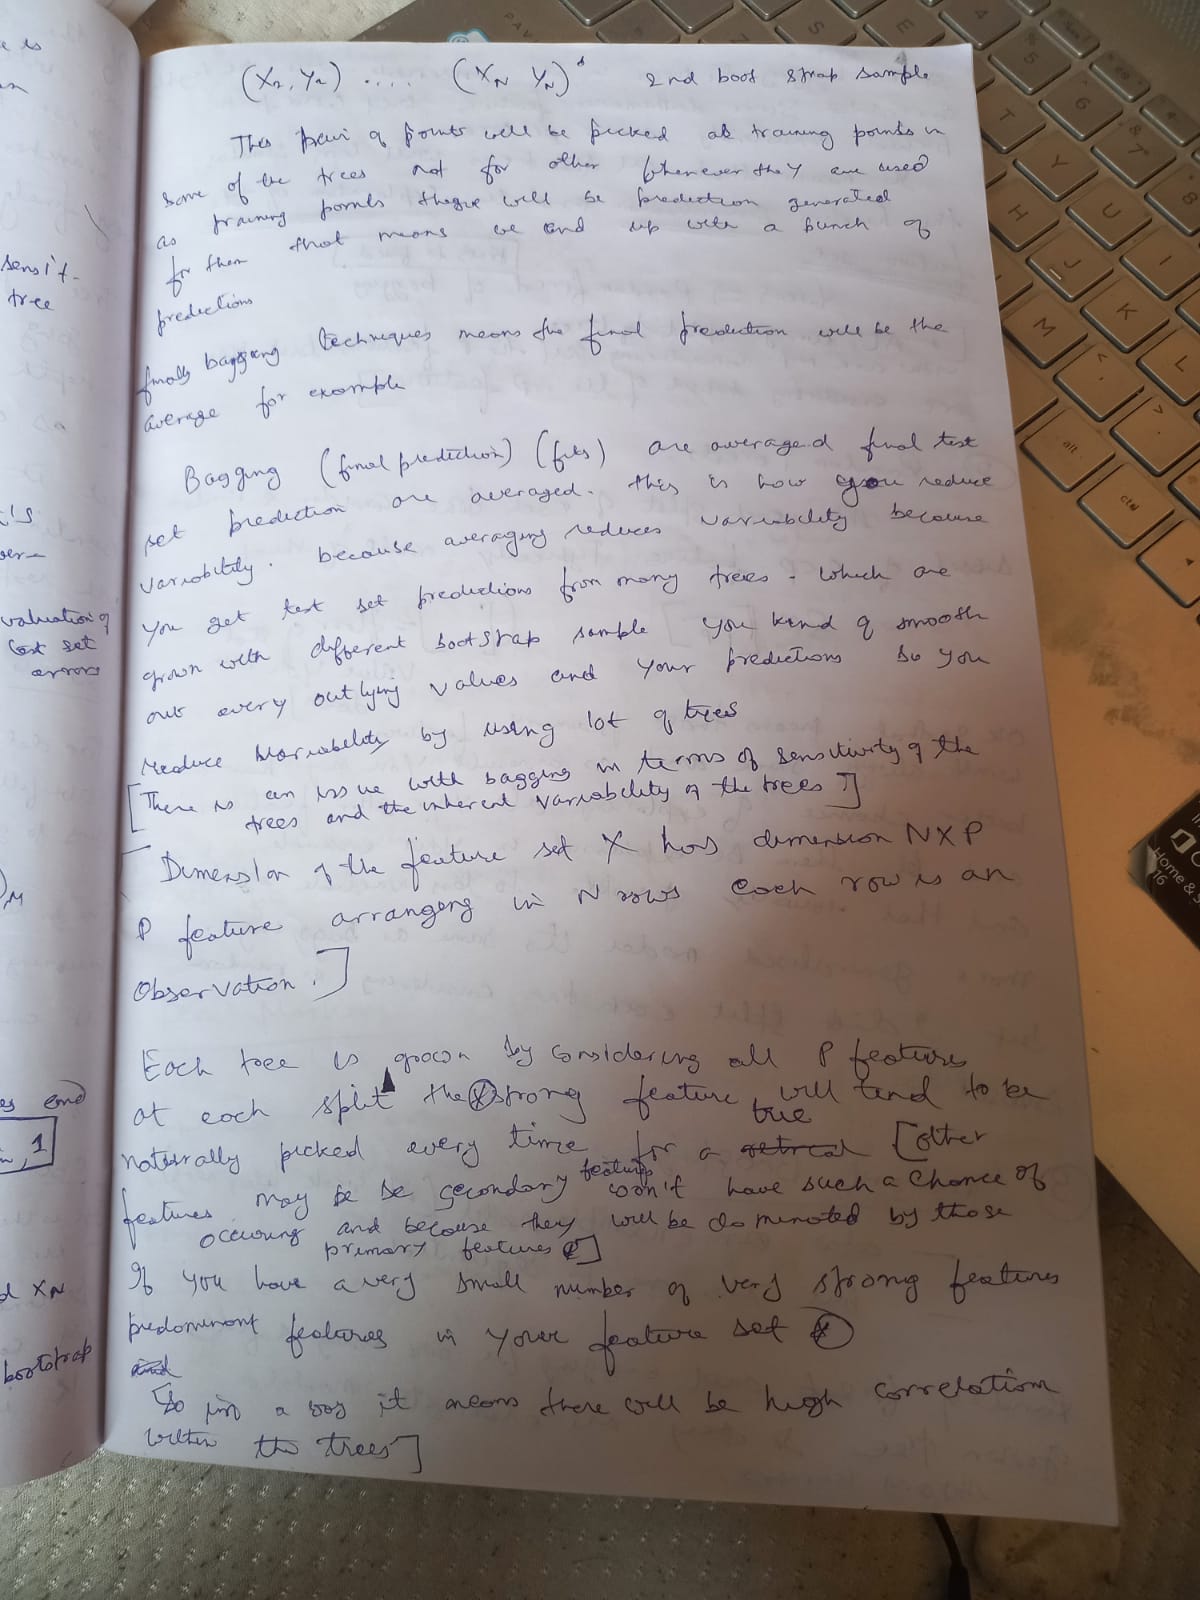 (X2, Y2) .... (XN YN) 2nd boot strap sample
This pair of points will be picked as training points in
some of the trees not for other whenever they are used
as training points there will be prediction generated
for them that means we end up with a bunch of
predictions
finally bagging techniques means the final prediction will be the
average for example
Bagging (final prediction) (fits) are averaged final test
set prediction are averaged. this is how you reduce
variability. because averaging reduces variability because
you get test set predictions from many trees. which are
grown with different bootstrap sample you kind of smooth
out every outlying values and your predictions so you
reduce variability by using lot of trees
[There is an issue with bagging in terms of sensitivity of the
trees and the inherent variability of the trees]
[Dimension of the feature set X has dimension NXP
P feature arranging in N rows each row is an
Observation.]
Each tree is grown by considering all P features
at each split the strong feature will tend to be
naturally picked every time for a tree [other
features may be be secondary features won't have such a chance of
occuring and because they will be dominated by those
primary features]
If you have a very small number of very strong features
predominant features in your feature set X
and
[So in a way it means there will be high correlation
within the trees]
e is
sensit-
tree
valuation of
test set
errors
es and
1
d XN
bootstrap
PAV
S
E
4
5
6
7
8
9
T
Y
U
I
H
J
K
L
M
<
>
alt
ctrl
Home & S
16